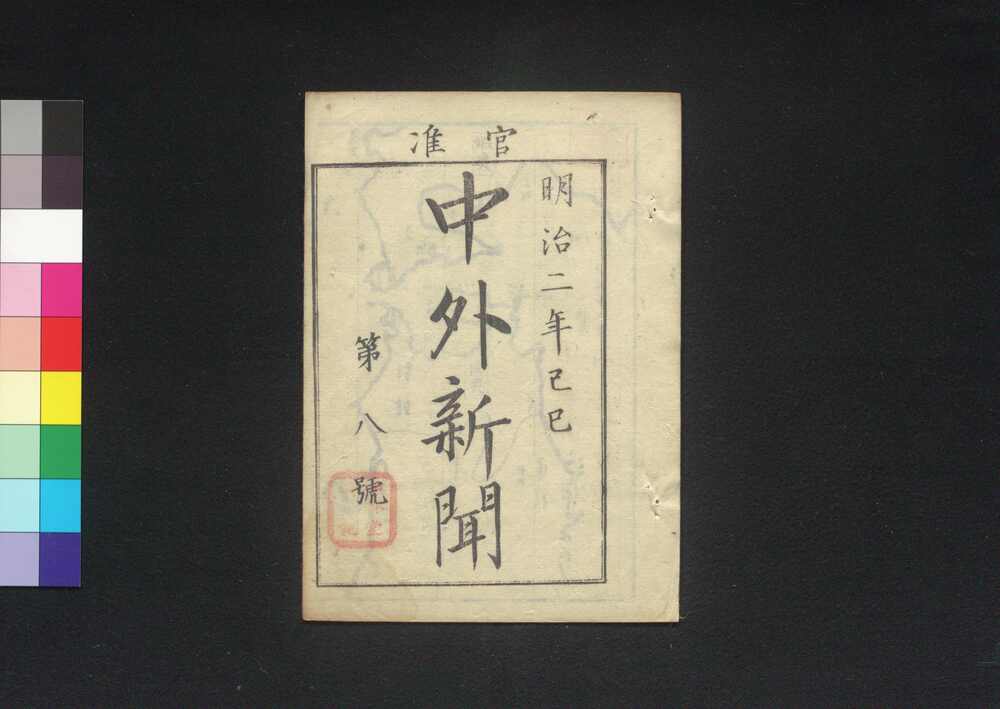 官准
明治二年己巳
中外新聞
第八號